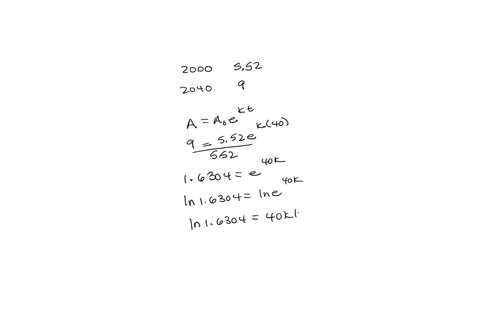 2000 5.52
2040 9
A = A₀e^kt
9 = 5.52e^k(40)
5.52
1.6304 = e^40k
ln 1.6304 = lne^40k
ln 1.6304 = 40kl